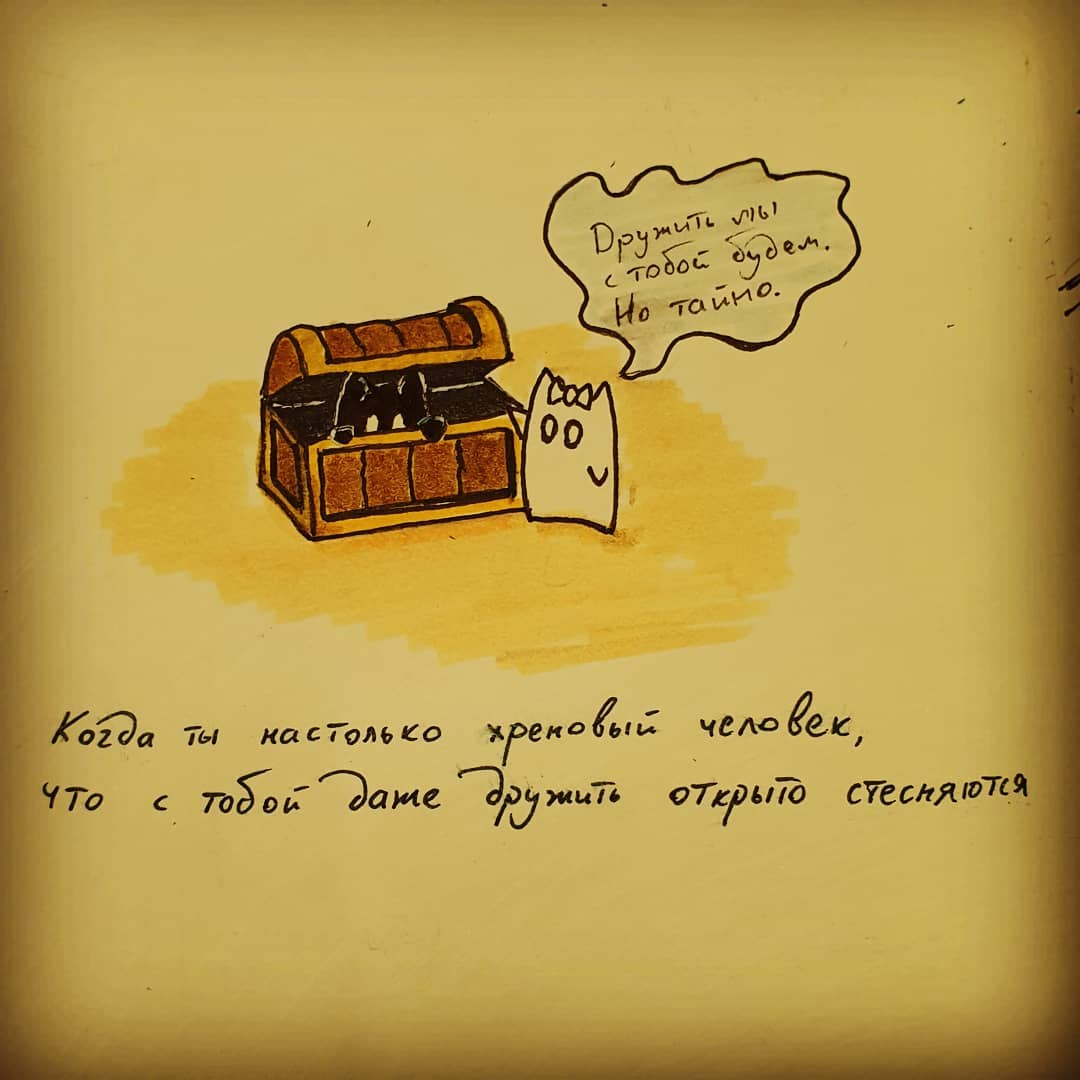 Дружить мы
с тобой будем.
Но тайно.
Когда ты настолько хреновый человек,
что с тобой даже дружить открыто стесняются